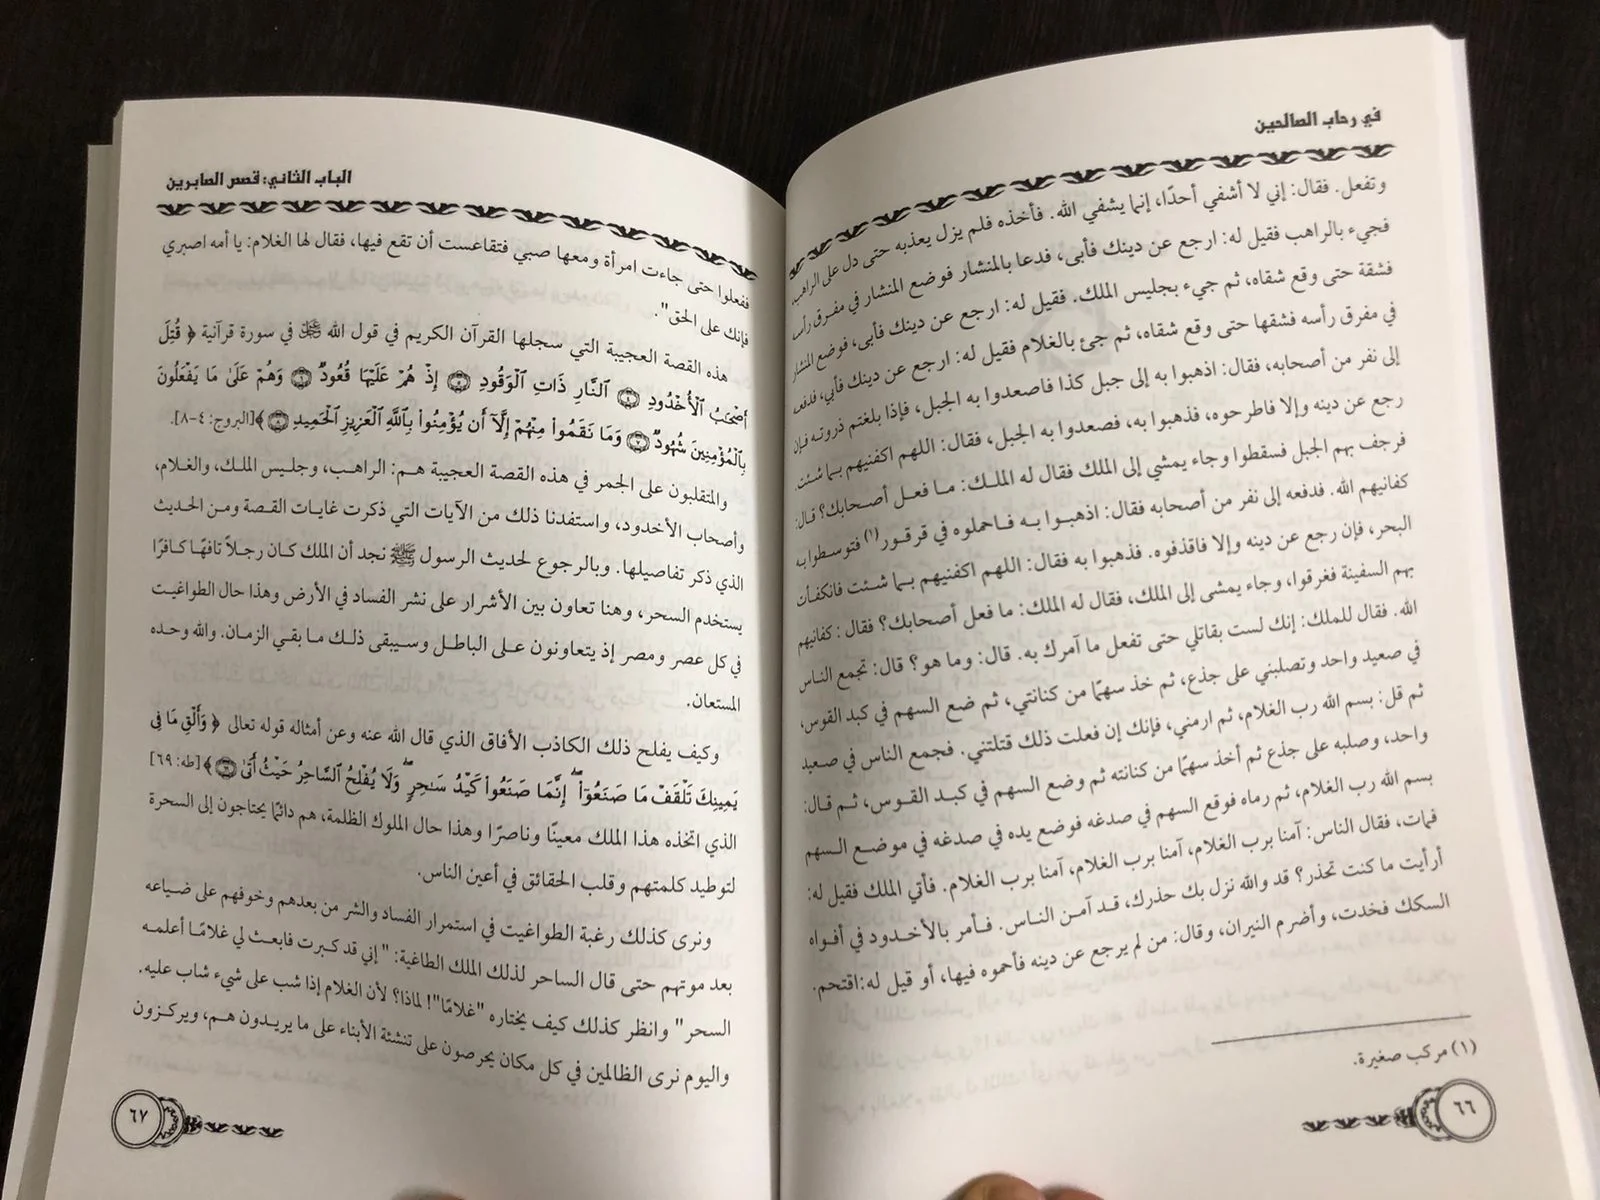 في رحاب الصالحين
وتفعل. فقال: إني لا أشفي أحدًا، إنما يشفي الله. فأخذه فلم يزل يعذبه حتى دل على الراهب،
فجيء بالراهب فقيل له: ارجع عن دينك فأبى، فدعا بالمنشار فوضع المنشار في مفرق رأسه
فشقة حتى وقع شقاه، ثم جيء بجليس الملك. فقيل له: ارجع عن دينك فأبى، فوضع المنشار
في مفرق رأسه فشقها حتى وقع شقاه، ثم جئ بالغلام فقيل له: ارجع عن دينك فأبي، فدفعه
إلى نفر من أصحابه، فقال: اذهبوا به إلى جبل كذا فاصعدوا به الجبل، فإذا بلغتم ذروته فإن
رجع عن دينه وإلا فاطرحوه، فذهبوا به، فصعدوا به الجبل، فقال: اللهم اكفنيهم بما شئت.
فرجف بهم الجبل فسقطوا وجاء يمشي إلى الملك فقال له الملك: ما فعل أصحابك؟ قال:
كفانيهم الله. فدفعه إلى نفر من أصحابه فقال: اذهبوا به فاحملوه في قرقور(١) فتوسطوا به
البحر، فإن رجع عن دينه وإلا فاقذفوه. فذهبوا به فقال: اللهم اكفنيهم بما شئت فانكفأت
بهم السفينة فغرقوا، وجاء يمشى إلى الملك، فقال له الملك: ما فعل أصحابك؟ فقال: كفانيهم
الله. فقال للملك: إنك لست بقاتلي حتى تفعل ما آمرك به. قال: وما هو؟ قال: تجمع الناس
في صعيد واحد وتصلبني على جذع، ثم خذ سهمًا من كنانتي، ثم ضع السهم في كبد القوس،
ثم قل: بسم الله رب الغلام، ثم ارمني، فإنك إن فعلت ذلك قتلتني. فجمع الناس في صعيد
واحد، وصلبه على جذع ثم أخذ سهمًا من كنانته ثم وضع السهم في كبد القوس، ثم قال:
بسم الله رب الغلام، ثم رماه فوقع السهم في صدغه فوضع يده في صدغه في موضع السهم
فمات، فقال الناس: آمنا برب الغلام، آمنا برب الغلام، آمنا برب الغلام. فأتي الملك فقيل له:
أرأيت ما كنت تحذر؟ قد والله نزل بك حذرك، قد آمن الناس. فأمر بالأخدود في أفواه
السكك فخدت، وأضرم النيران، وقال: من لم يرجع عن دينه فأحموه فيها، أو قيل له:اقتحم.
(١) مركب صغيرة.
٦٦
الباب الثاني: قصص الصابرين
ففعلوا حتى جاءت امرأة ومعها صبي فتقاعست أن تقع فيها، فقال لها الغلام: يا أمه اصبري
فإنك على الحق".
هذه القصة العجيبة التي سجلها القرآن الكريم في قول الله ﷻ في سورة قرآنية ﴿ قُتِلَ
أَصْحَٰبُ ٱلْأُخْدُودِ ۝٤ ٱلنَّارِ ذَاتِ ٱلْوَقُودِ ۝٥ إِذْ هُمْ عَلَيْهَا قُعُودٌ ۝٦ وَهُمْ عَلَىٰ مَا يَفْعَلُونَ
بِٱلْمُؤْمِنِينَ شُهُودٌ ۝٧ وَمَا نَقَمُوا۟ مِنْهُمْ إِلَّآ أَن يُؤْمِنُوا۟ بِٱللَّهِ ٱلْعَزِيزِ ٱلْحَمِيدِ ۝٨ ﴾[البروج: ٤-٨].
والمتقلبون على الجمر في هذه القصة العجيبة هم: الراهب، وجليس الملك، والغلام،
وأصحاب الأخدود، واستفدنا ذلك من الآيات التي ذكرت غايات القصة ومن الحديث
الذي ذكر تفاصيلها. وبالرجوع لحديث الرسول ﷺ نجد أن الملك كان رجلاً تافهًا كافرًا
يستخدم السحر، وهنا تعاون بين الأشرار على نشر الفساد في الأرض وهذا حال الطواغيت
في كل عصر ومصر إذ يتعاونون على الباطل وسيبقى ذلك ما بقي الزمان. والله وحده
المستعان.
وكيف يفلح ذلك الكاذب الأفاق الذي قال الله عنه وعن أمثاله قوله تعالى ﴿ وَأَلْقِ مَا فِى
يَمِينِكَ تَلْقَفْ مَا صَنَعُوٓا۟ ۖ إِنَّمَا صَنَعُوا۟ كَيْدُ سَٰحِرٍ ۖ وَلَا يُفْلِحُ ٱلسَّاحِرُ حَيْثُ أَتَىٰ ۝٦٩ ﴾[طه: ٦٩]
الذي اتخذه هذا الملك معينًا وناصرًا وهذا حال الملوك الظلمة، هم دائمًا يحتاجون إلى السحرة
لتوطيد كلمتهم وقلب الحقائق في أعين الناس.
ونرى كذلك رغبة الطواغيت في استمرار الفساد والشر من بعدهم وخوفهم على ضياعه
بعد موتهم حتى قال الساحر لذلك الملك الطاغية: "إني قد كبرت فابعث لي غلامًا أعلمه
السحر" وانظر كذلك كيف يختاره "غلامًا"! لماذا؟ لأن الغلام إذا شب على شيء شاب عليه.
واليوم نرى الظالمين في كل مكان يحرصون على تنشئة الأبناء على ما يريدون هم، ويركزون
٦٧